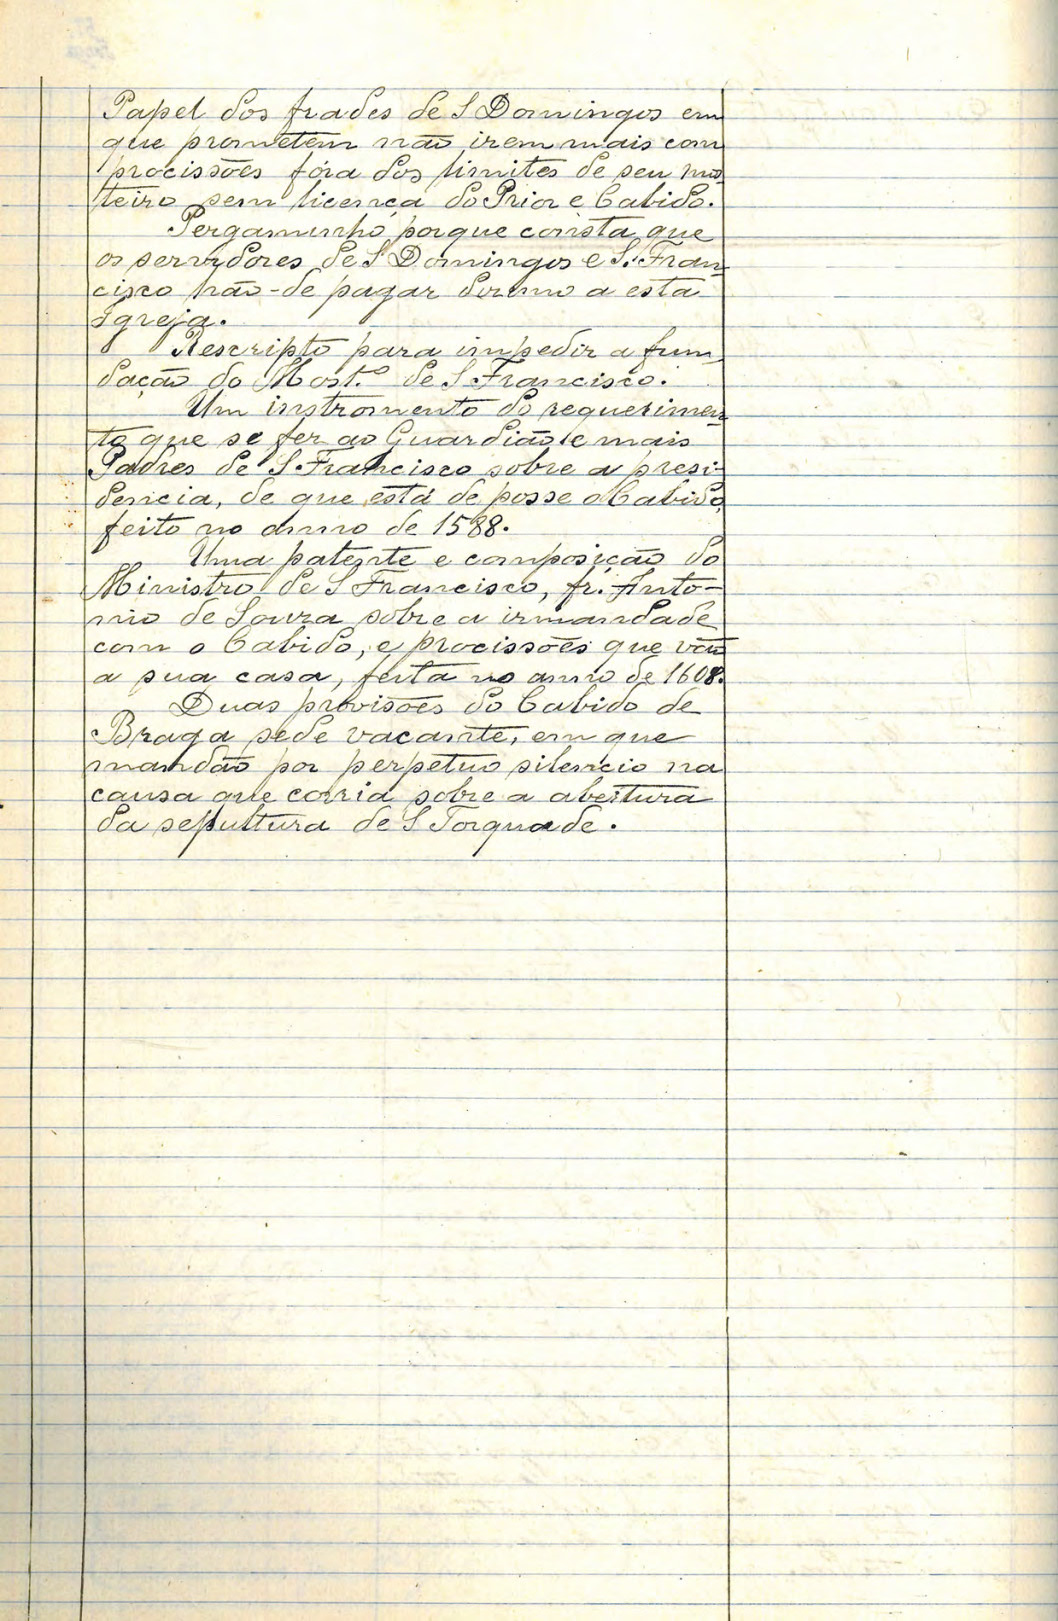 Papel dos frades de S Domingos em
que prometem não irem mais com
procissões fóra dos limites de seu mos
teiro sem licença do Prior e Cabido.
Pergaminho porque consta que
os servidores de S Domingos e S. Fran
cisco hão-de pagar dizimo a esta
Igreja.
Rescripto para impedir a fun
dação do Most.º de S Francisco.
Um instromento do requerimen
to que se fez ao Guardião e mais
Padres de S Francisco sobre a presi-
dencia, de que está de posse o Cabido,
feito no anno de 1588.
Uma patente e composição do
Ministro de S Francisco, fr. Anto-
nio de Souza sobre a irmandade
com o Cabido, e procissões que vão
a sua casa, feita no anno de 1608.
Duas provisões do Cabido de
Braga sede vacante, em que
mandão por perpetuo silencio na
causa que corria sobre a abertura
da sepultura de S Torquade.